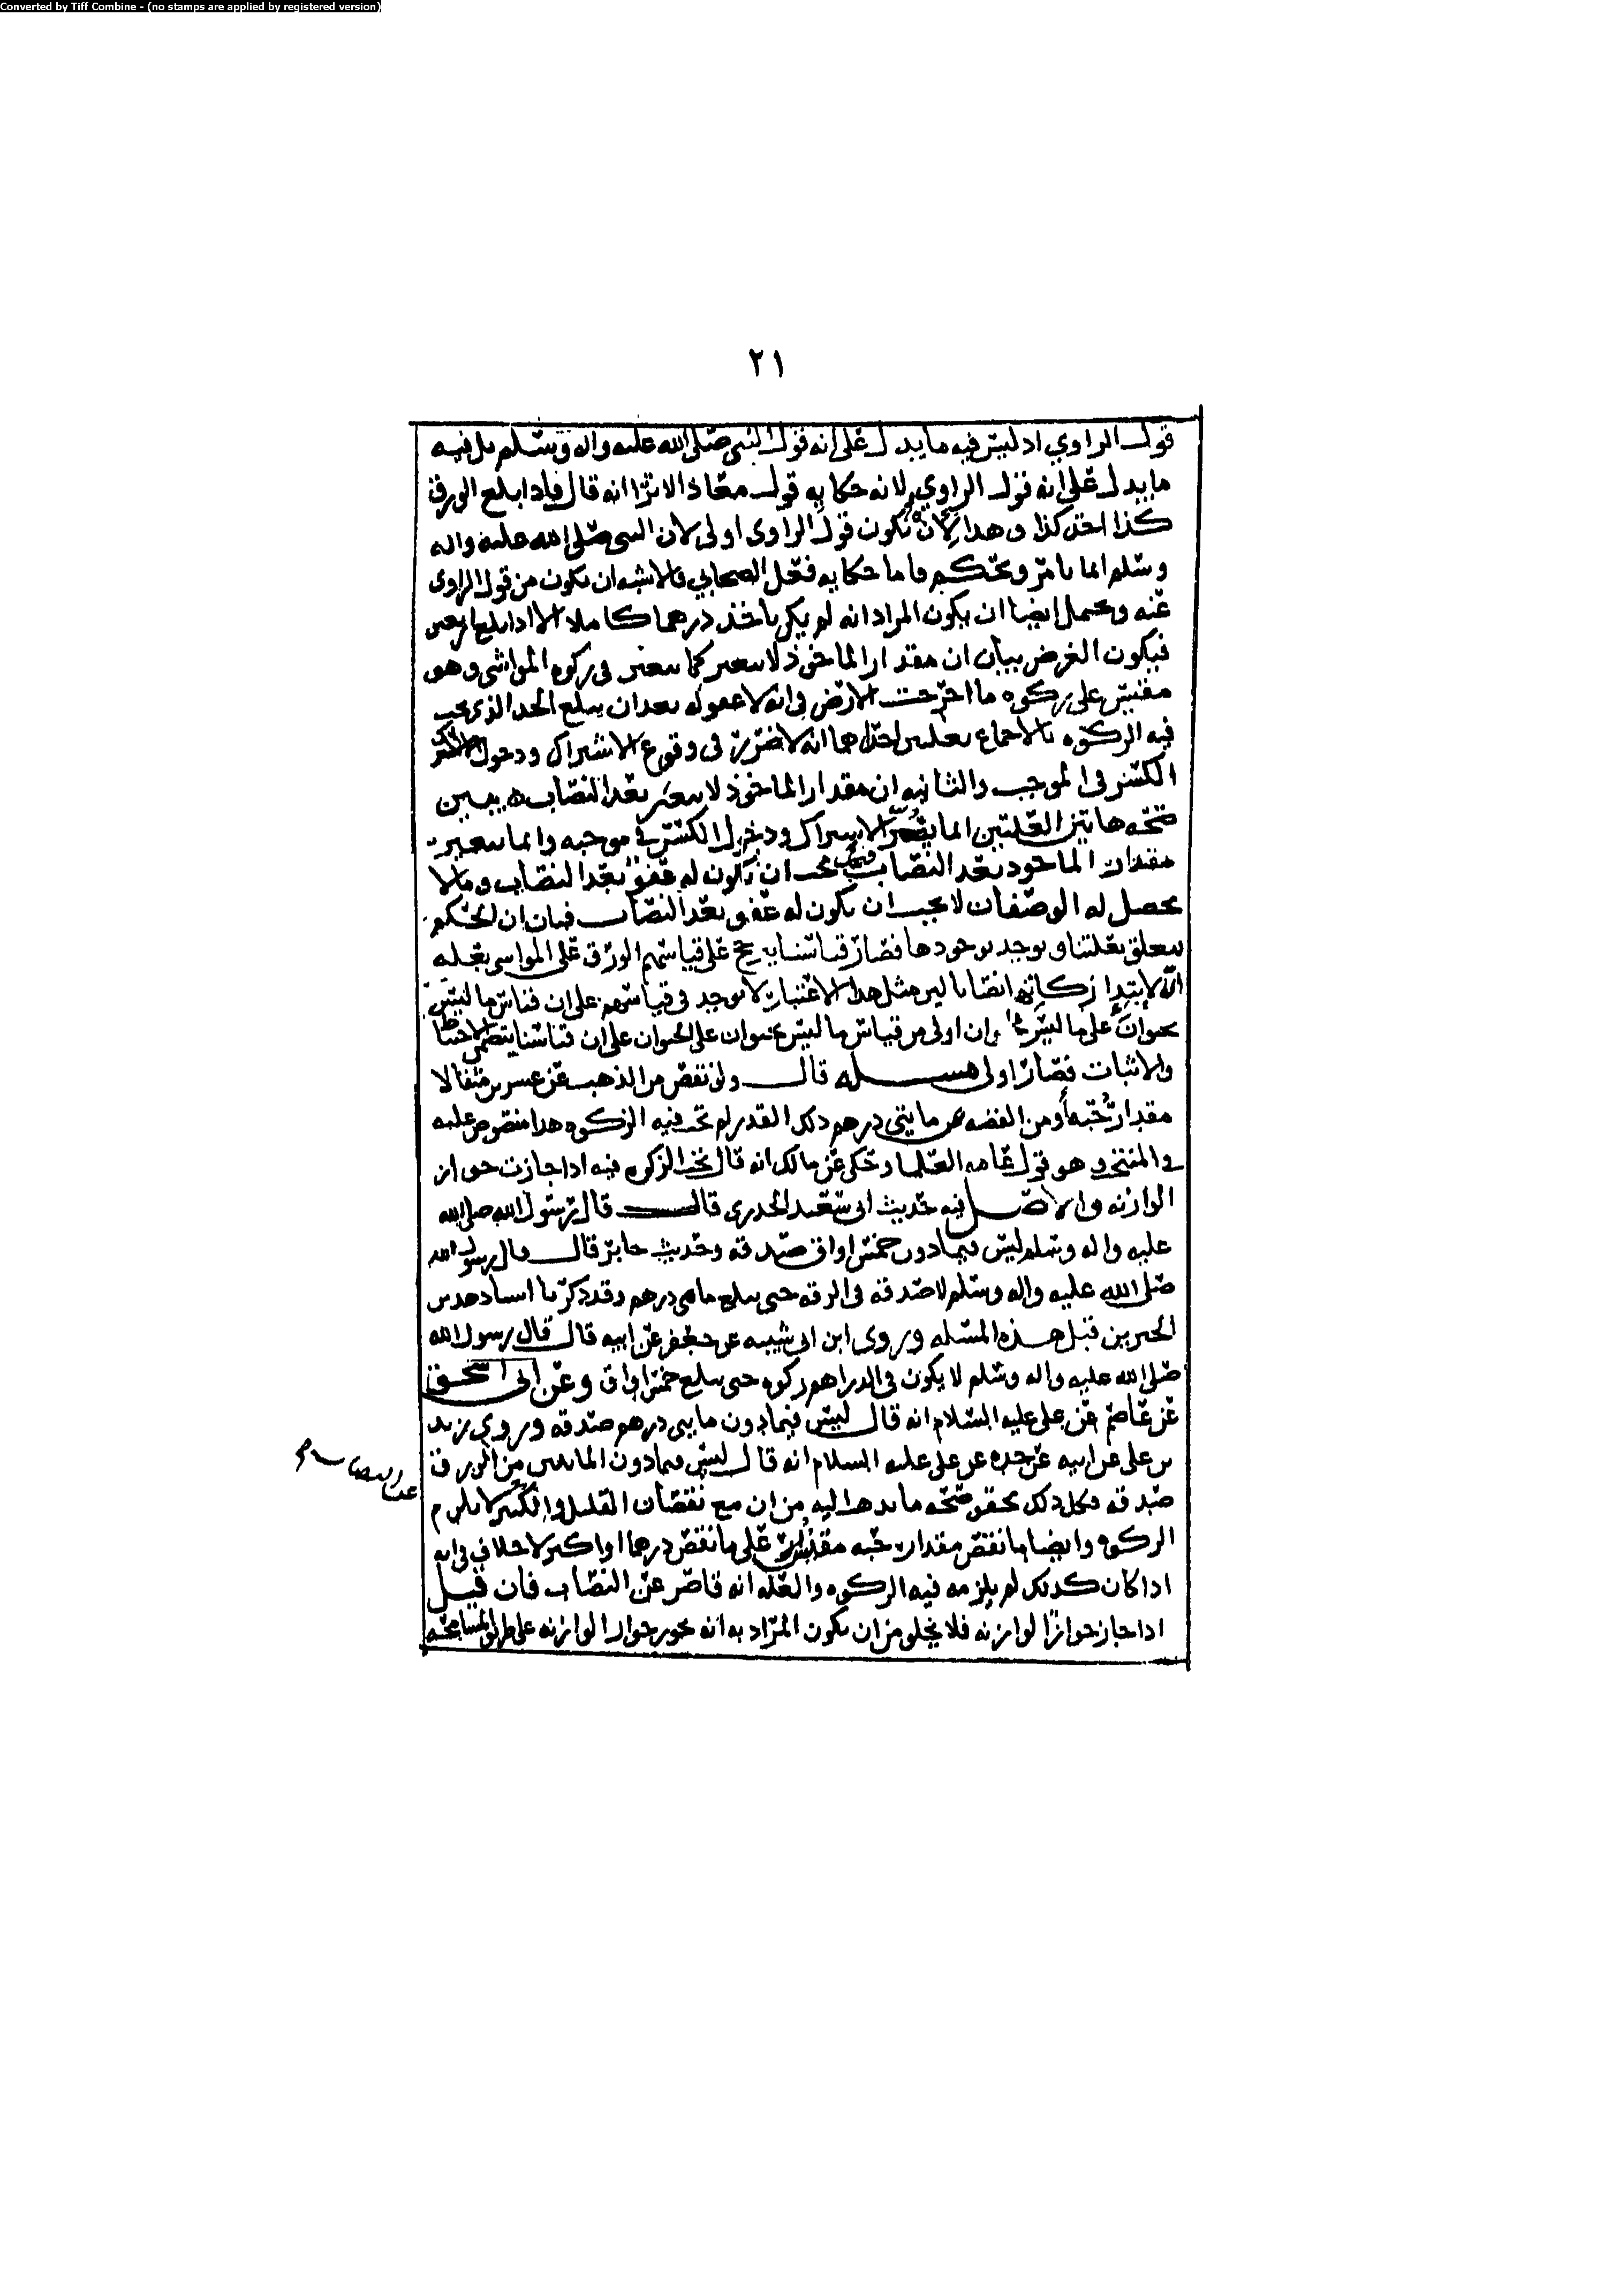 Converted by Tiff Combine - (no stamps are applied by registered version)
٢١
قول الراوي اذ ليس فيه ما يدل على انه قول النبي صلى الله عليه واله وسلم بل فيه
ما يدل على انه قول الراوي لانه حكا به قول معاذ الا ترا انه قال فاذا بلغ الورق
كذا اخذ كذا وهذا لأن تكون قول الراوى اولى لان النبى صلى الله عليه واله
وسلم انما يامر ويحكم فاما حكايه فعل الصحابي فالاشبه ان يكون من قول الراوى
عنه ويحمل ايضا ان يكون المراد انه لم يكن ياخذ درهما كاملا الا اذا بلغ اربعين
فيكون الغرض بيان ان مقدار الماخوذ لا يتغير كما يتغير فى زكوه المواشي وهو
مقيس على زكوه ما اخرجت الارض في انه لا عفو له بعد ان يبلغ الحد الذي يجب
فيه الزكوه بالاجماع بعلتين احداهما انه لا ضرر فى وقوع الاشتراك ودخول
الكسر فى الموجب والثانيه ان مقدار الماخوذ لا يتغير بعد النصاب يبين
صحه هاتين العلتين انما يضر الاشتراك ودخول الكسر في موجبه وانما يتغير
مقدار الماخوذ بعد النصاب يجب ان يكون له عفو بعد النصاب وما لا
يحصل له الوصفان لا يجب ان يكون له عفو بعد النصاب فبان ان الحكم
يتعلق بعلتنا ويوجد بوجودها فصار قياسنا يرجح على قياسهم الورق على المواسى بعله
ان لابتدا زكاته انصابا ليس مثل هذا الاعتبار لا يوجد فى قياسهم على ان قياس ما ليس
بحيوان على ما ليس بحيوان اولى من قياس ما ليس بحيوان على الحيوان على ان قياسنا يتضمن الاحتياط
والاثبات فصار اولى مسله قال ولو نقص من الذهب عن عسرين مثقالا
مقدار حبه أو من الفضه عن مايتي درهم ذلك القدر لم تجب فيه الزكوه هذا منصوص عليه
في المنتخب وهو قول عامه العلما وحكى عن مالك انه قال تجب الزكوه فيه اذا جازت جواز
الوازنه والاصل فيه حديث ابى سعيد الخدرى قال قال رسول الله صلى الله
عليه واله وسلم ليس فيما دون خمس اواق صدقه وحديث جابر قال قال رسول الله
صلى الله عليه واله وسلم لا صدقه فى الرقه حتى يبلغ مايتى درهم وقد ذكرنا اسناد هذين
الخبرين قبل هذه المسله وروى ابن ابى شيبه عن جعفر عن ابيه قال قال رسول الله
صلى الله عليه واله وسلم لا يكون في الدراهم زكوه حتى يبلغ خمس اواق وعن ابى اسحق
عن عاصم عن على عليه السلام انه قال ليس فيما دون مايتى درهم صدقه وروي زيد
بن على عن ابيه عن جده عن على عليه السلام انه قال ليس فيما دون المايتين من الورق
صدقه فكل ذلك يحقق صحه ما يذهب اليه من ان مع نقصان القليل والكثير لا يلزم
عن النصاب
الزكوه وايضا ما نقص مقدار حبه مقيس على ما نقص درهما او اكثر لا خلاف في انه
اذا كان كذلك لم يلزمه فيه الزكوه والعله انه قاصر عن النصاب فان قيل
اذا جاز جواز الوازنه فلا يخلو من ان يكون المراد به انه يجوز جواز الوازنه على طريق المسامحه